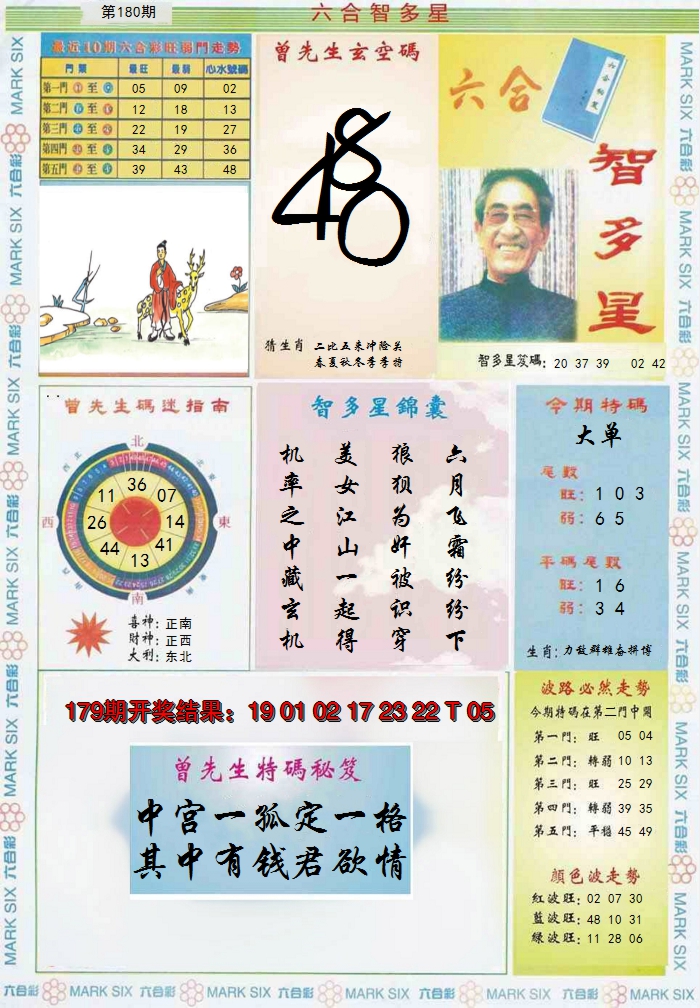 第180期
六合智多星
最近10期六合彩旺弱門走勢
門類 最旺 最弱 心水號碼
第一門 至 05 09 02
第二門 至 12 18 13
第三門 至 22 19 27
第四門 至 34 29 36
第五門 至 39 43 48
曾先生玄空碼
480
猜生肖
二比五来冲险关
春夏秋冬季季特
六合
智多星
智多星笈碼: 20 37 39 02 42
曾先生碼迷指南
北
西北
东北
西
東
南
36
07
14
41
13
44
26
11
喜神:正南
財神:正西
大利:东北
智多星錦囊
六月飞霜纷纷下
狼狈为奸被识穿
美女江山一起得
机率之中藏玄机
今期特碼
大单
尾數
旺:1 0 3
弱:6 5
平碼尾數
旺:1 6
弱:3 4
生肖:力敌群雄奋拼博
179期开奖结果:19 01 02 17 23 22 T 05
曾先生特碼秘笈
中宫一孤定一格
其中有钱君欲情
波路必然走勢
今期特碼在第二門中開
第一門:旺 05 04
第二門:轉弱 10 13
第三門:旺 25 29
第四門:轉弱 39 35
第五門:平穩 45 49
顔色波走勢
紅波旺:02 07 30
藍波旺:48 10 31
綠波旺:11 28 06
MARK SIX 六合彩